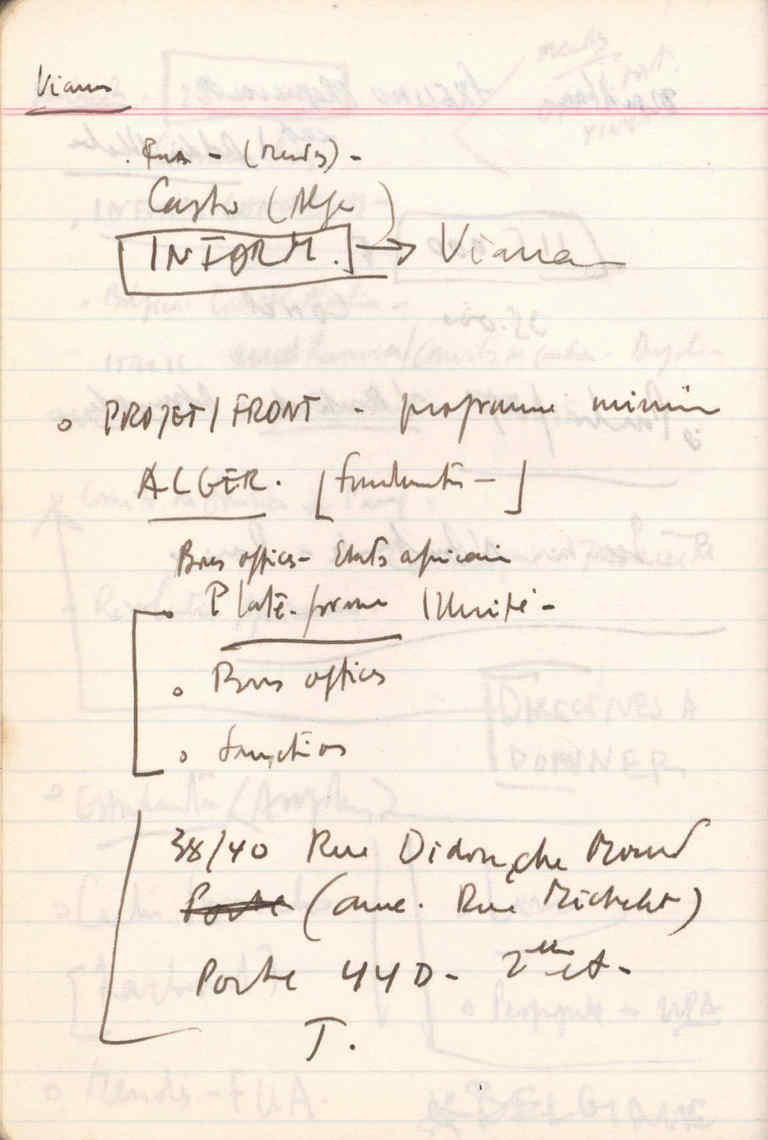 Viana
. Fua - (Mendes) -
Castro (Alge)
INFORM. → Viana
o PROJET/FRONT - programme minim
ALGER. [ -]
Bons offices - Etats africain
. Plate-forme Unité -
o Bons offices
o Sanctions
38/40 Rue Didouche Mourad
Porte (anc. Rue Michelet)
Porte 44D - 2ème ét.
T.